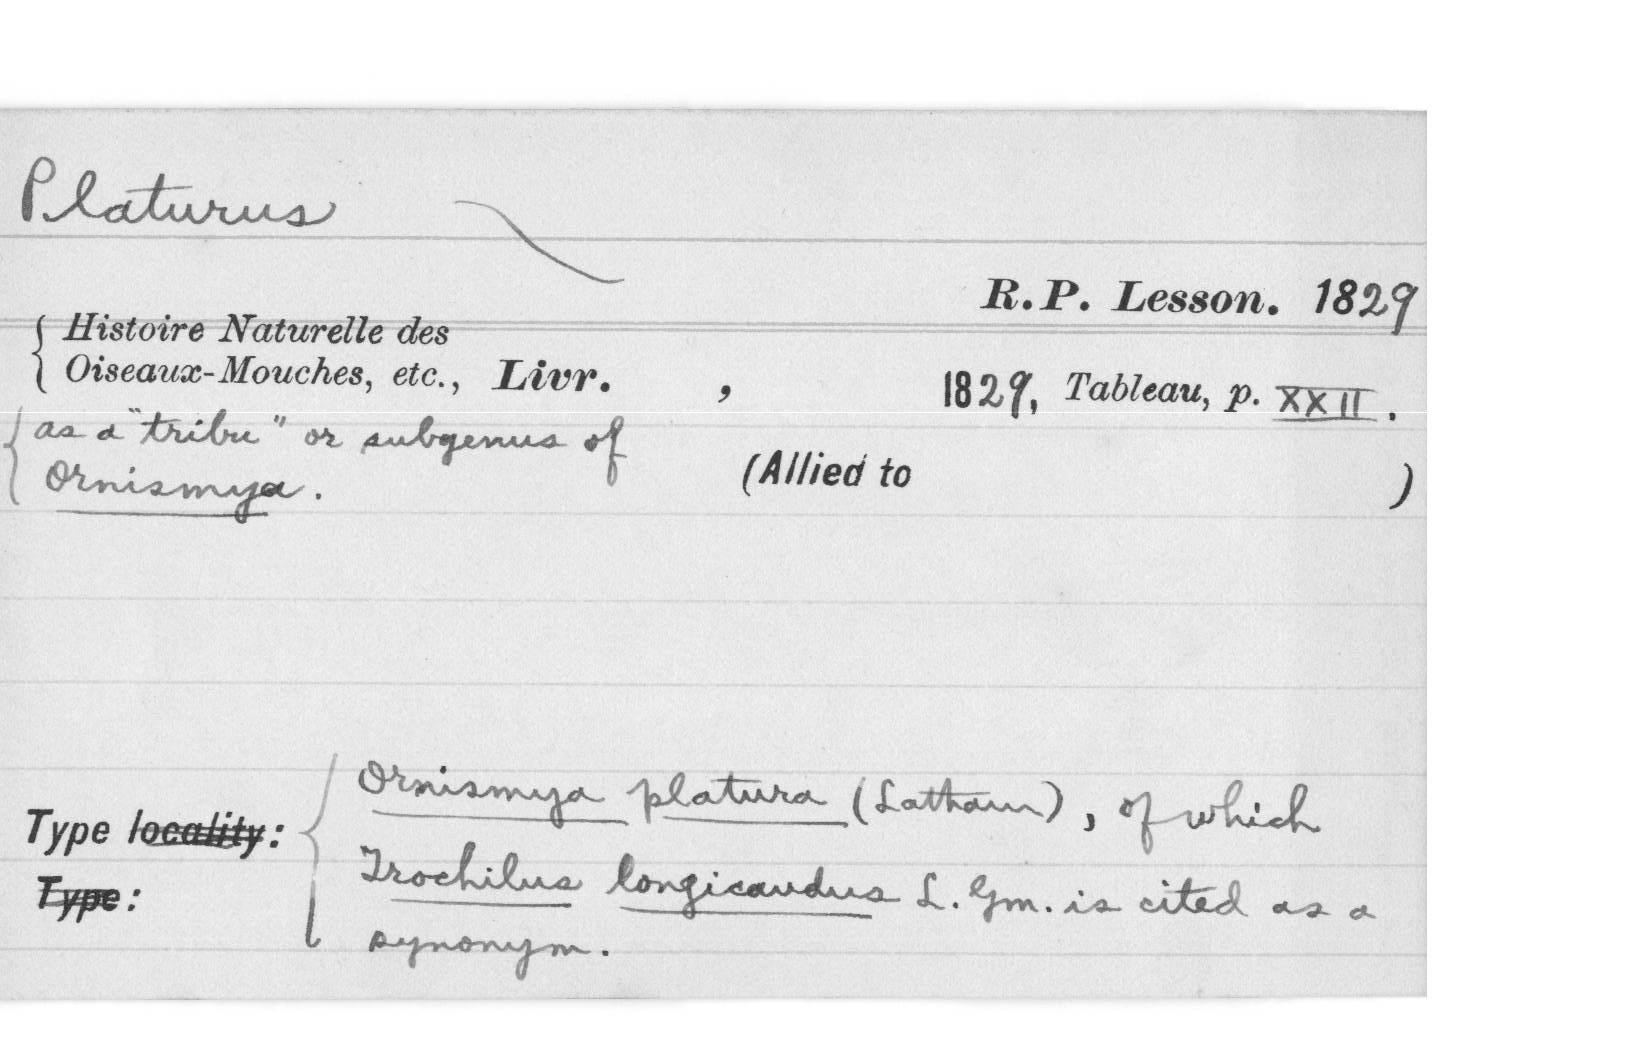 Platurus
R.P. Lesson. 1829
Histoire Naturelle des
Oiseaux-Mouches, etc., Livr. , 1829, Tableau, p. XXII.
as a "tribu" or subgenus of
Ornismya.
(Allied to )
Ornismya platura (Latham), of which
Type locality:
Trochilus longicaudus L. Gm. is cited as a
Type:
synonym.